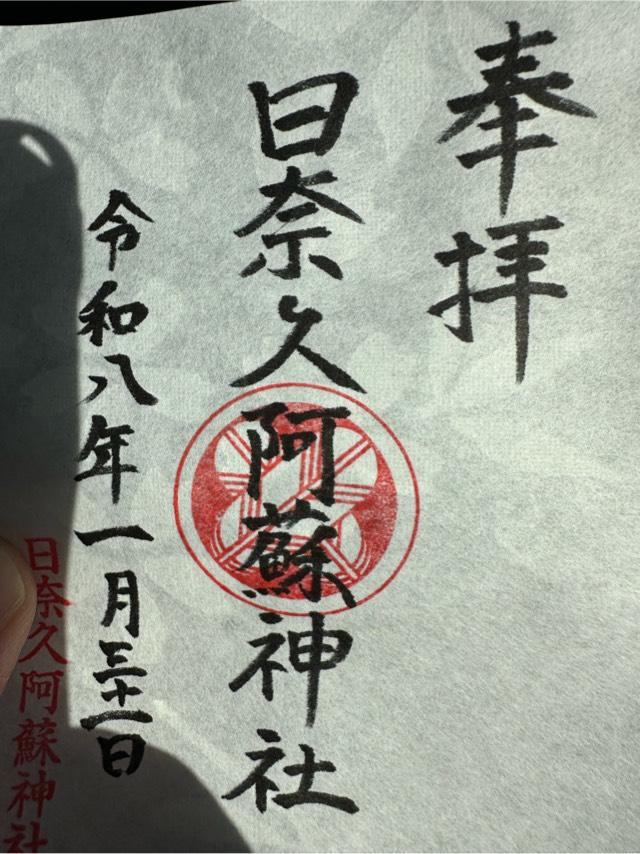 奉拝
日奈久阿蘇神社
令和八年一月三十一日
日奈久阿蘇神社